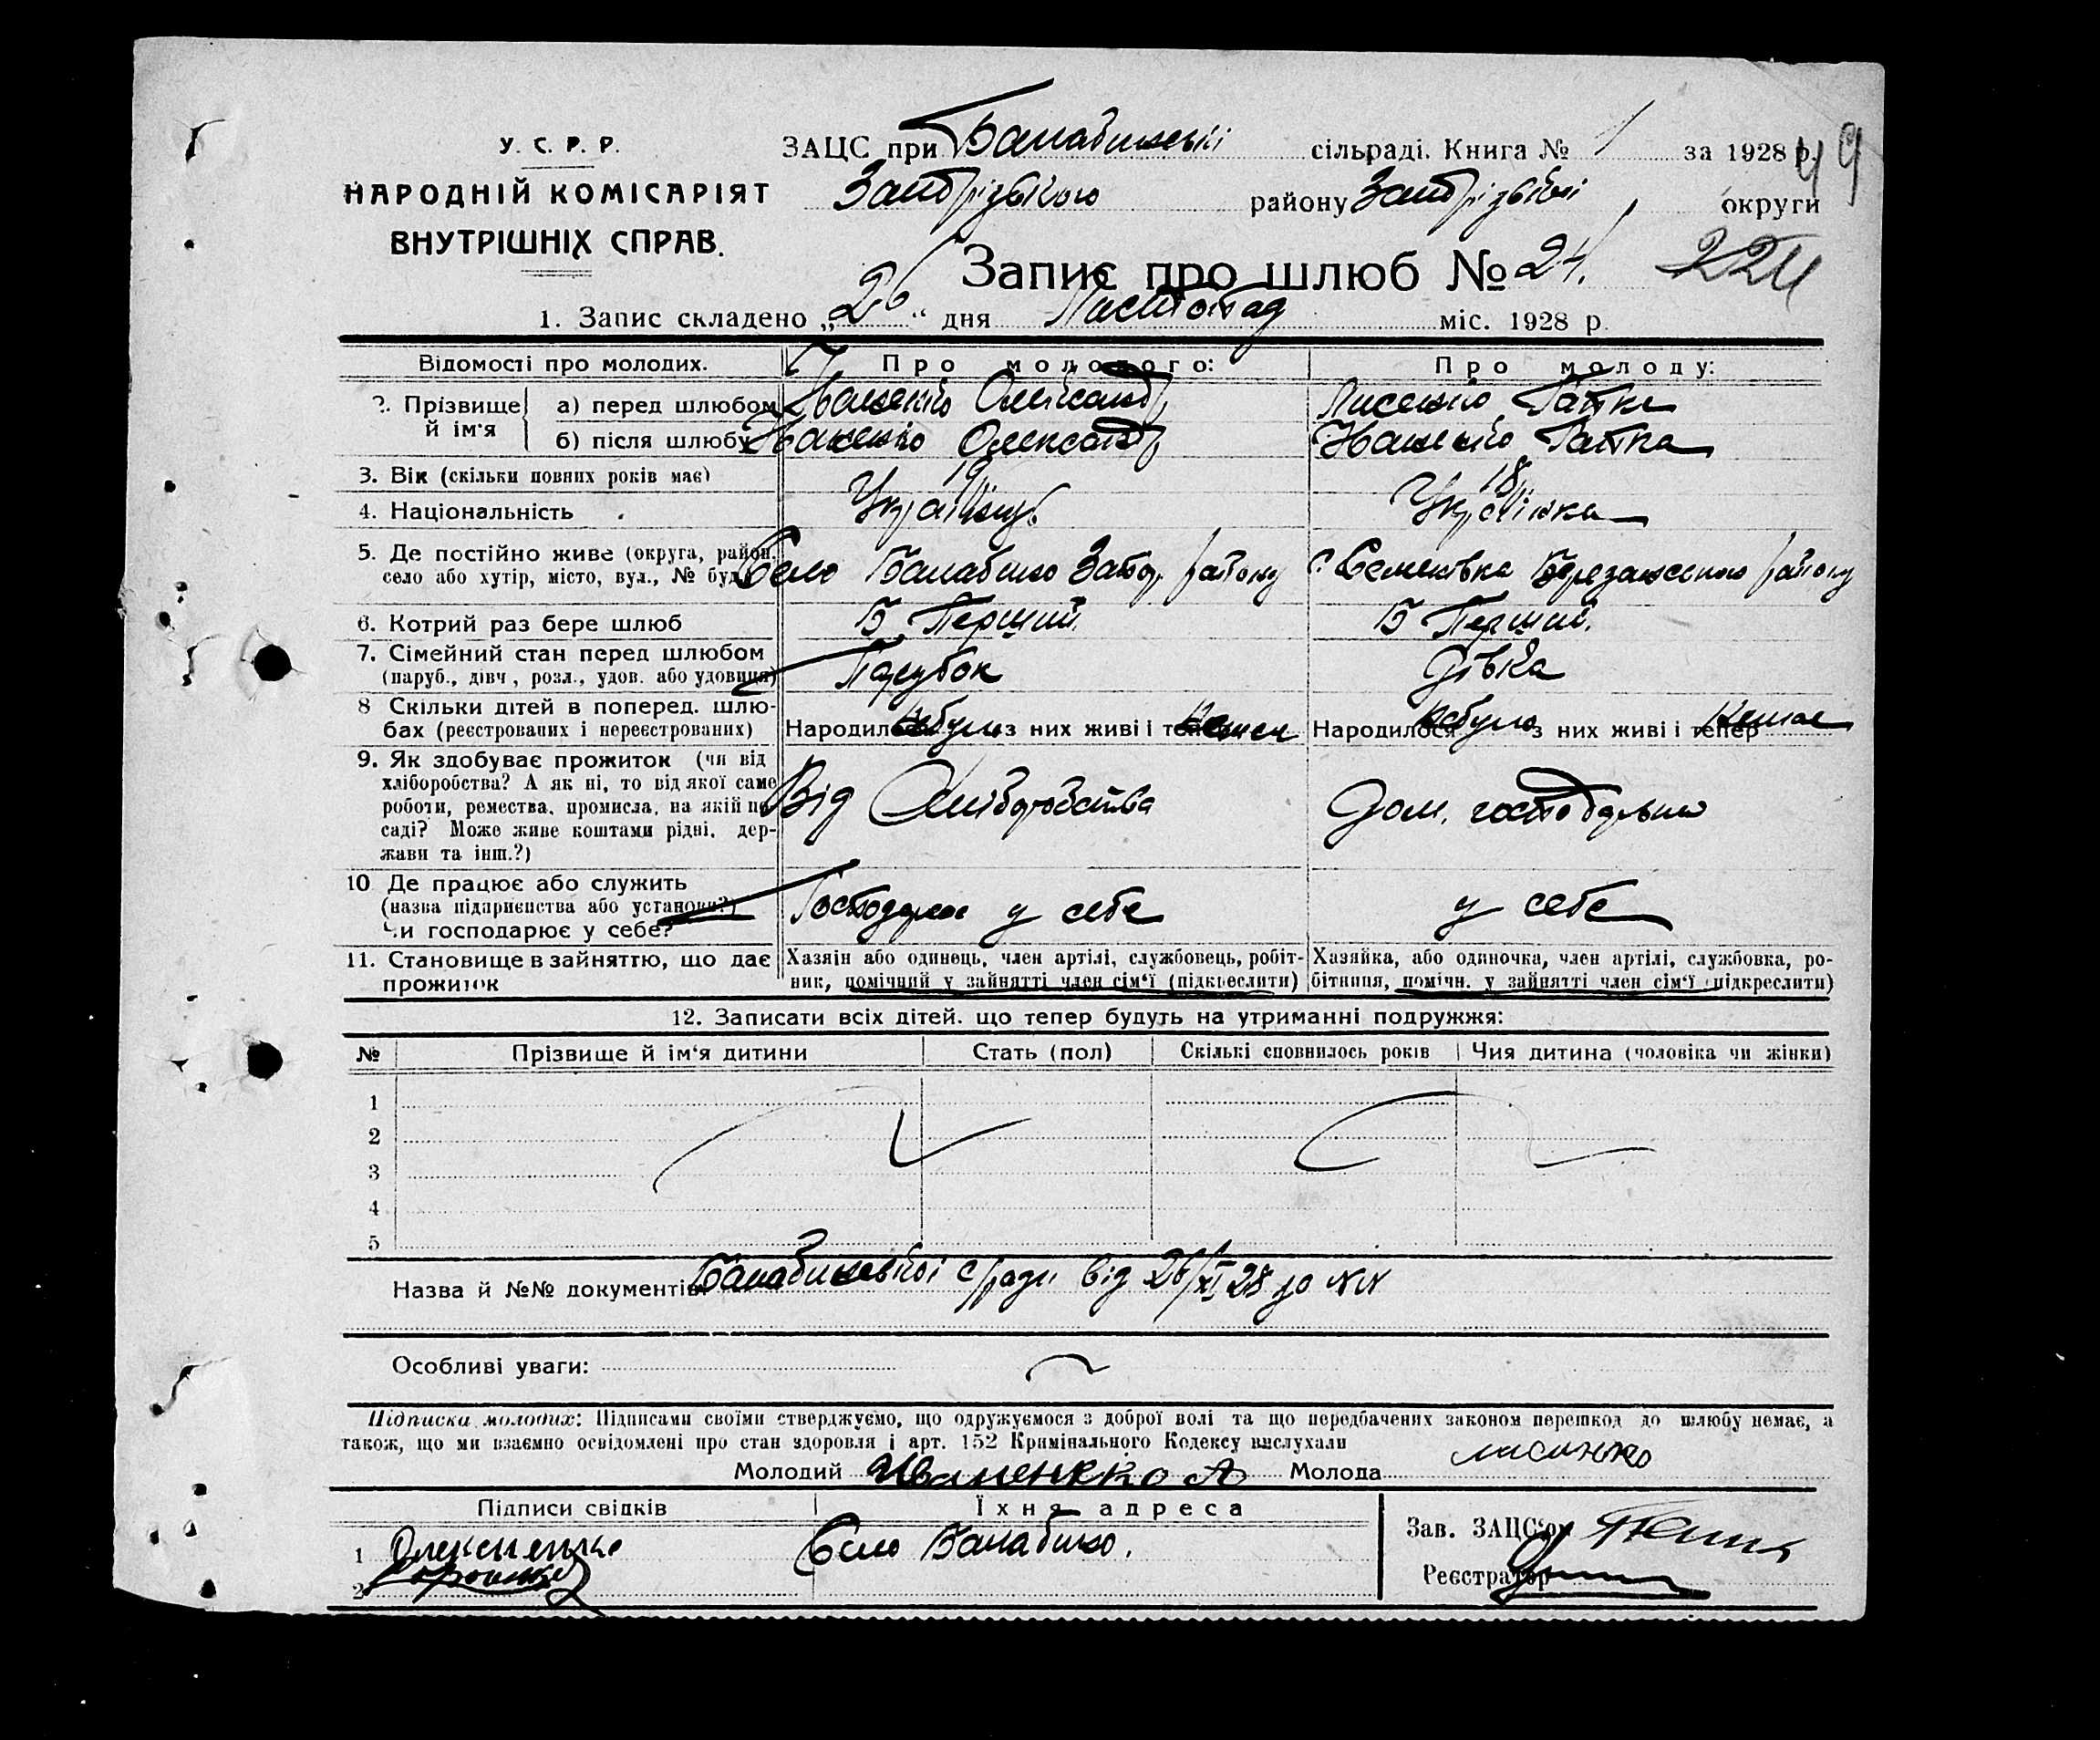 У. С. Р. Р.
НАРОДНІЙ КОМІСАРІЯТ
ВНУТРІШНІХ СПРАВ.
ЗАЦС при Балабинські сільраді. Книга № 1 за 1928 р. 49
Запорізького району Запорізької округи
Запис про шлюб № 24. 224
1. Запис складено „26“ дня Листопад міс. 1928 р.
Відомості про молодих. Про молодого: Про молоду:
2. Прізвище й ім'я а) перед шлюбом Олександр Лисенко Гапка
б) після шлюбу Олександр Гапка
3. Вік (скільки повних років має) 19 18
4. Національність Українець Українка
5. Де постійно живе (округа, район, село або хутір, місто, вул., № буд.) Село Балабино Запор. району с. Семенівка району
6. Котрий раз бере шлюб Б Перший Б Перший.
7. Сімейний стан перед шлюбом Парубок Дівка
(паруб., дівч., розл., удов. або удовиця)
8 Скільки дітей в поперед. шлю-
бах (реєстрованих і нереєстрованих) Народилося небуло з них живі і тепер немає Народилося небуло з них живі і тепер немає
9. Як здобуває прожиток (чи від
хліборобства? А як ні, то від якої саме
роботи, ремества, промисла, на якій по-
саді? Може живе коштами рідні, дер-
жави та інш.?)
Від Хліборобства Дом. господарьки
10 Де працює або служить
(назва підприємства або установи?)
Чи господарює у себе?
Господарює у себе у себе
11. Становище в зайняттю, що дає
прожиток
Хазяін або одинець, член артілі, службовець, робіт-
ник, помічний у зайнятті член сім'ї (підкреслити)
Хазяйка, або одиночка, член артілі, службовка, ро-
бітниця, помічн. у зайнятті член сім'ї (підкреслити)
12. Записати всіх дітей. що тепер будуть на утриманні подружжя:
№ Прізвище й ім'я дитини Стать (пол) Скількі сповнилось років Чия дитина (чоловіка чи жінки)
1
2
3
4
5
Назва й №№ документів: Балабинської с/ради від 26/XI 28 за
Особливі уваги:
Підписка молодих: Підписами своїми стверджуємо, що одружуємося з доброї волі та що передбачених законом перешкод до шлюбу немає, а
також, що ми взаємно освідомлені про стан здоровля і арт. 152 Кримінального Кодексу вислухали
Молодий А Молода лисинко
Підписи свідків Їхня адреса
1 Село Балабино.
2
Зав. ЗАЦС'ом
Реєстратор